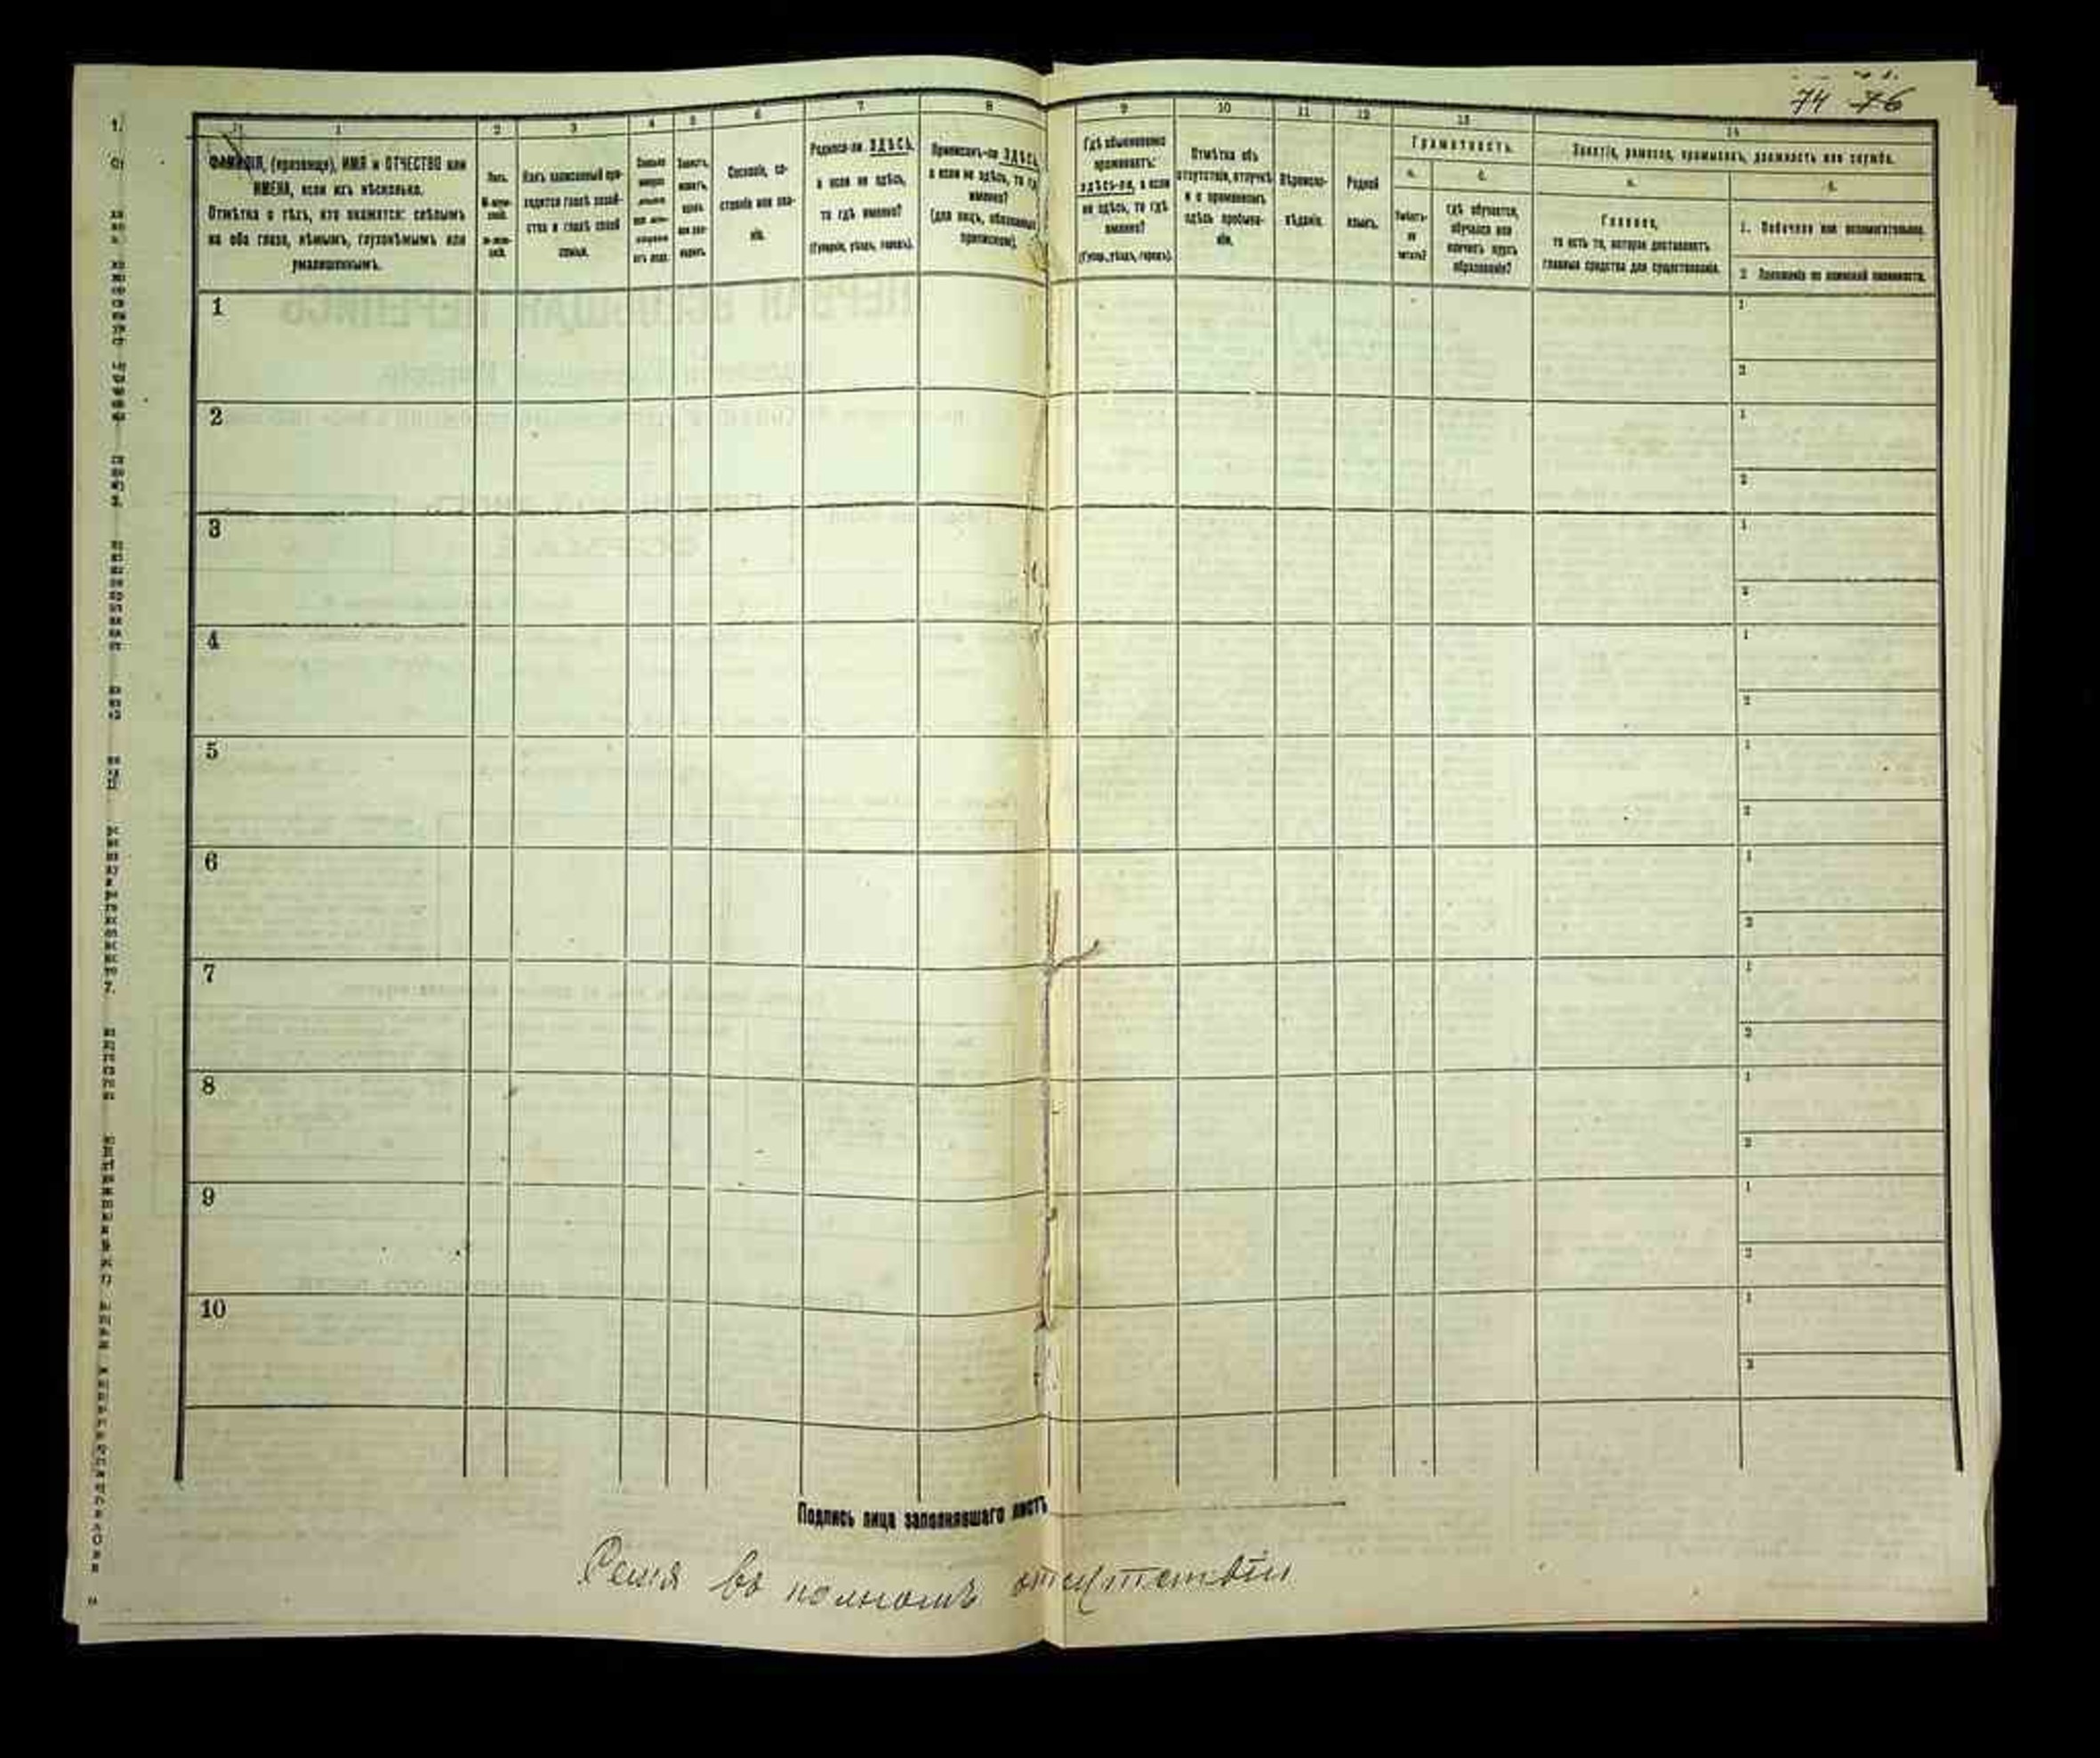 74 76
1 2 3 4 5 6 7 8 9 10 11 12 13 14
ФАМИЛІЯ, (прозвище), ИМЯ и ОТЧЕСТВО или
ИМЕНА, если ихъ нѣсколько.
Отмѣтка о тѣхъ, кто окажется: слѣпымъ
на оба глаза, нѣмымъ, глухонѣмымъ или
умалишеннымъ.
Полъ.
Какъ записанный при-
ходится главѣ хозяй-
ства и главѣ своей
семьи.
Сословіе, со-
стояніе или зва-
ніе.
Родился-ли ЗДѢСЬ,
а если не здѣсь,
то гдѣ именно?
(Губернія, уѣздъ, городъ).
Приписанъ-ли ЗДѢСЬ,
а если не здѣсь, то гдѣ
именно?
(для лицъ, обязанныхъ
припискою).
Гдѣ обыкновенно
проживаетъ:
здѣсь-ли, а если
не здѣсь, то гдѣ
именно?
(Губер., уѣздъ, городъ).
Отмѣтка объ
отсутствіи, отлучкѣ
и о временномъ
здѣсь пребыва-
ніи.
Вѣроиспо-
вѣданіе.
Родной
языкъ.
Грамотность.
а.
Умѣетъ-
ли
читать?
б.
гдѣ обучается,
обучался или
кончилъ курсъ
образованія?
Занятіе, ремесло, промыселъ, должность или служба.
а.
Главное,
то есть то, которое доставляетъ
главныя средства для существованія.
б.
1. Побочное или вспомогательное.
2. Положеніе по воинской повинности.
1
1
2
2
1
2
3
1
2
4
1
2
5
1
2
6
1
2
7
1
2
8
1
2
9
1
2
10
1
2
Подпись лица заполнявшаго листъ
Семья въ полномъ отсутствіи